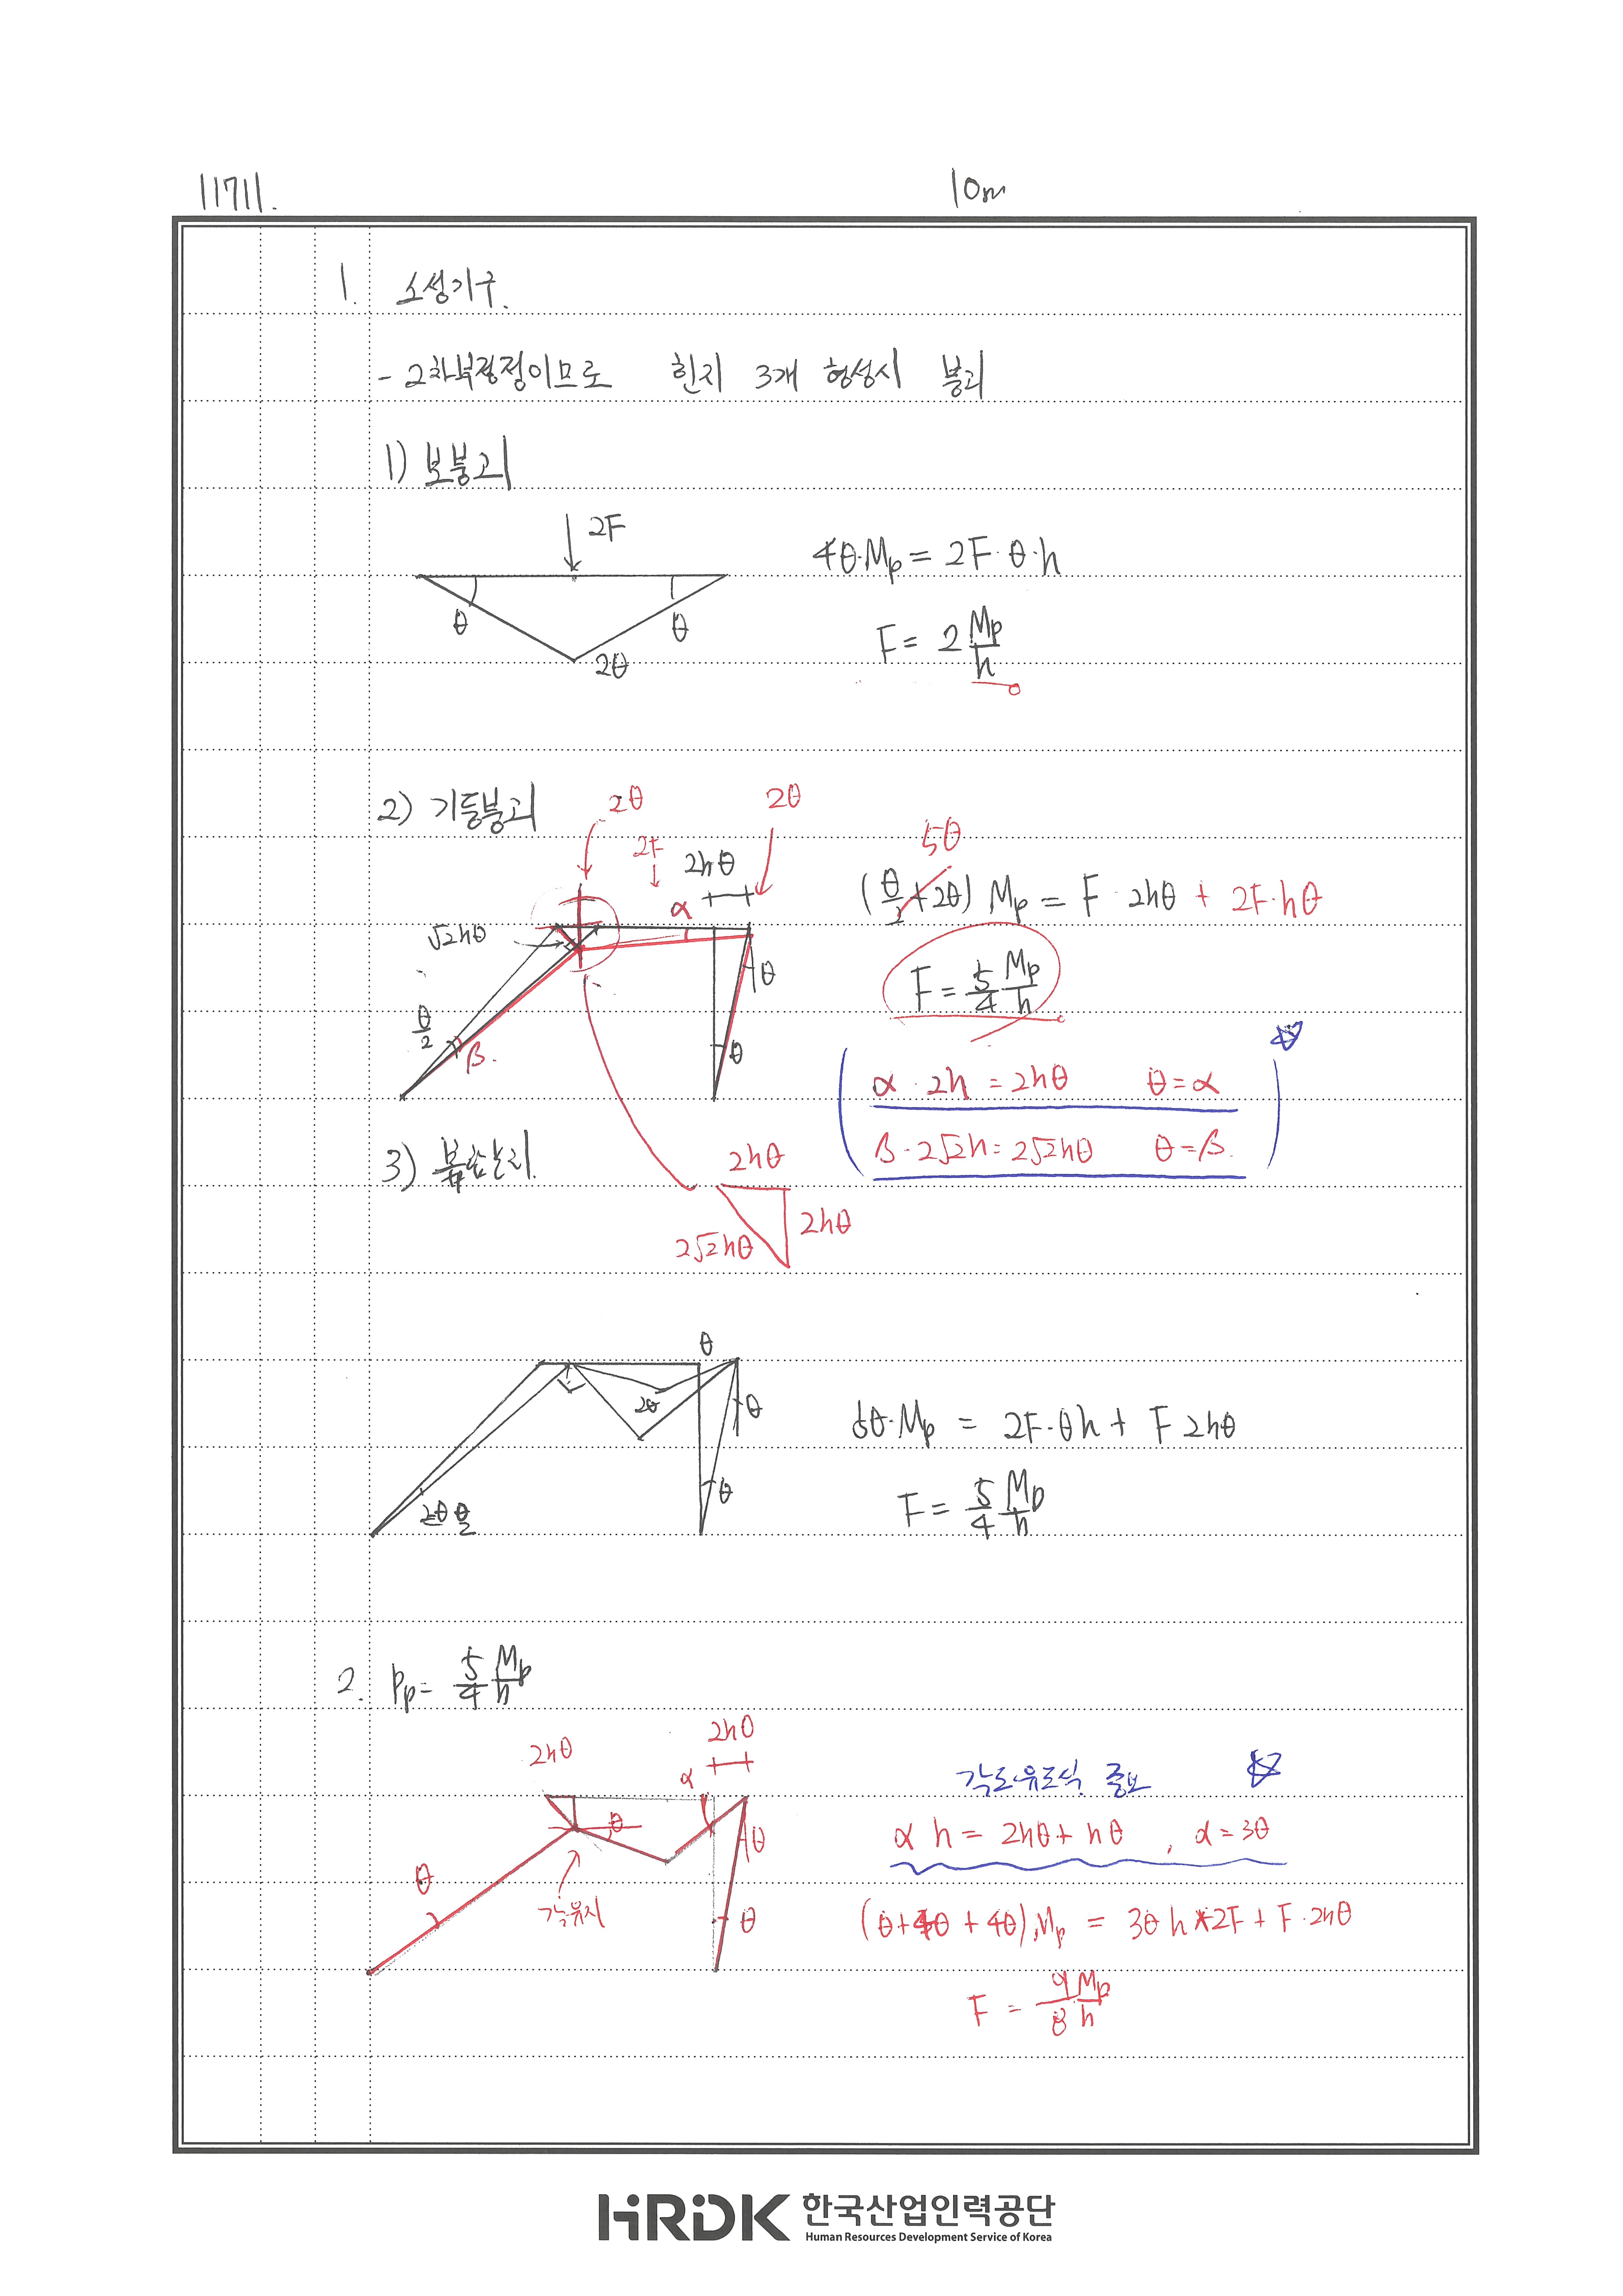 11711.
10m
1. 소성기구.
- 2차부정정이므로 힌지 3개 형성시 붕괴
1) 보붕괴
2F
θ θ
2θ
4θ·Mp = 2F·θ·h
F = 2 Mp/h
2) 기둥붕괴
2θ 2θ
2F 2hθ
α
√2hθ
θ
θ/2
β.
θ
5θ
(θ/2 + 2θ) Mp = F·2hθ + 2F·hθ
F = 5/4 Mp/h
α·2h = 2hθ θ = α
β·2√2h = 2√2hθ θ = β.
3)
2hθ
2hθ
2√2hθ
θ
2θ
θ
θ
5θ·Mp = 2F·θh + F 2hθ
F = 5/4 Mp/h
2. Pp = 5/4 Mp/h
2hθ
2hθ
α
θ
θ
θ
각유지
θ
각도유도식 중요
α h = 2hθ + hθ , α = 3θ
(θ + 4θ + 4θ) Mp = 3θ h * 2F + F·2hθ
F = 9/8 Mp/h
HRDK 한국산업인력공단
Human Resources Development Service of Korea